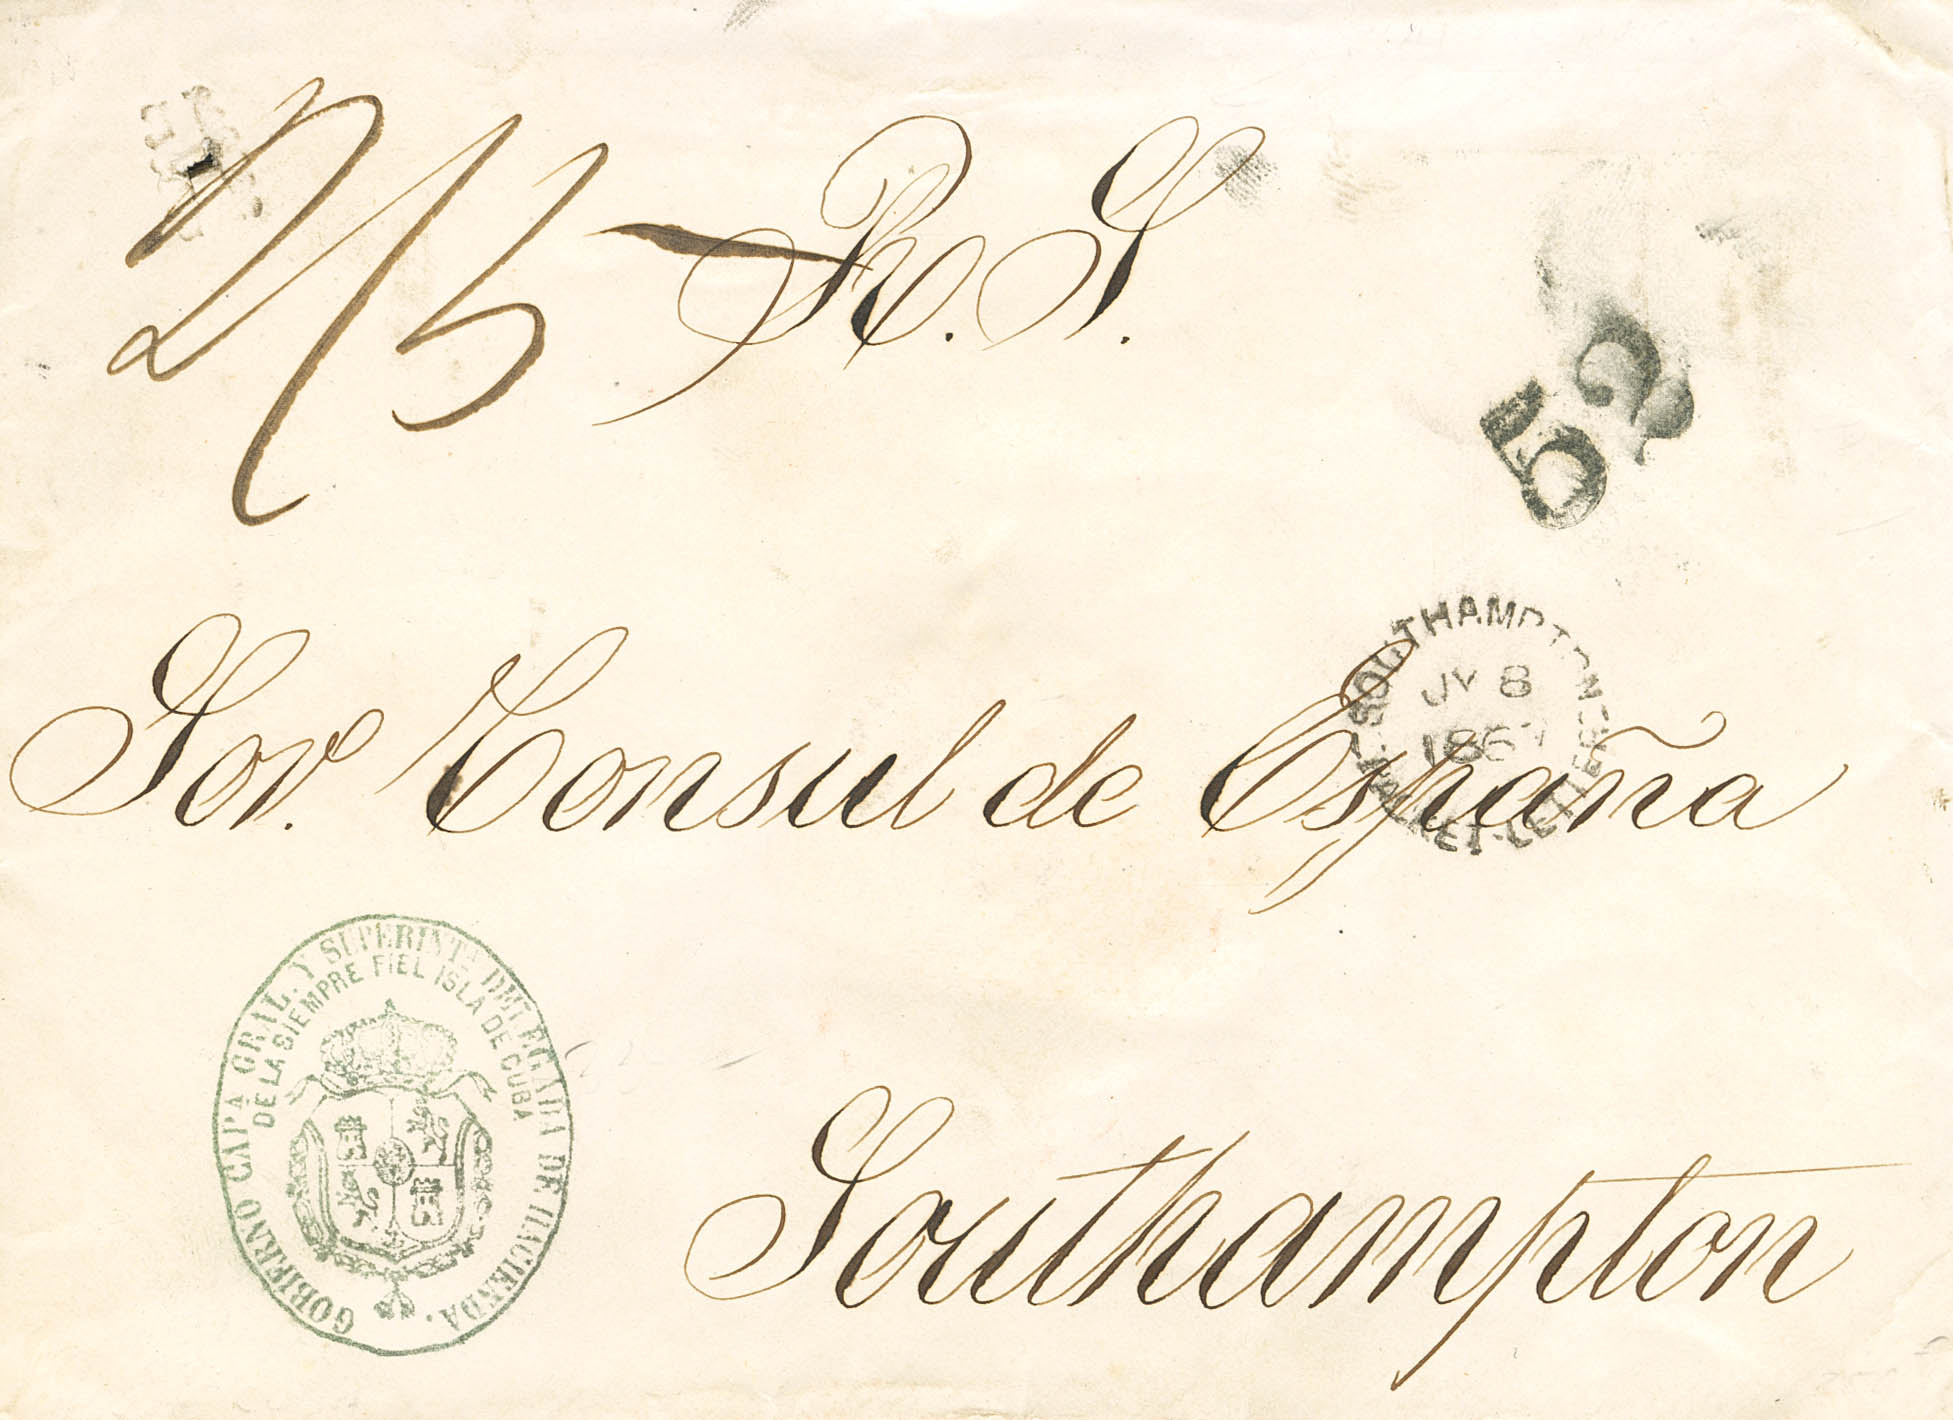 2/5 R. S.
52
SOUTHAMPTON
JY 8
186
PACKET-LETTER
Sor. Consul de España
GOBIERNO CAPA. GRAL. Y SUPERINTA. DELEGADA DE HACIENDA.
DE LA SIEMPRE FIEL ISLA DE CUBA
Southampton